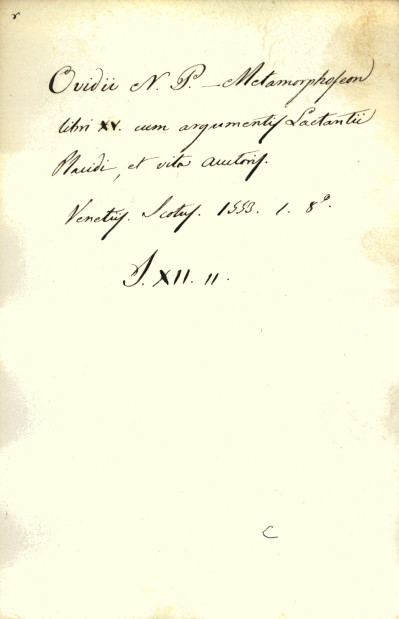 r
Ovidii N. P. — Metamorphoseon
libri XV. cum argumentis Lactantii
Placidi, et vita auctoris.
Venetiis. Scotus. 1553. 1. 8°.
S. XII. 11.
C